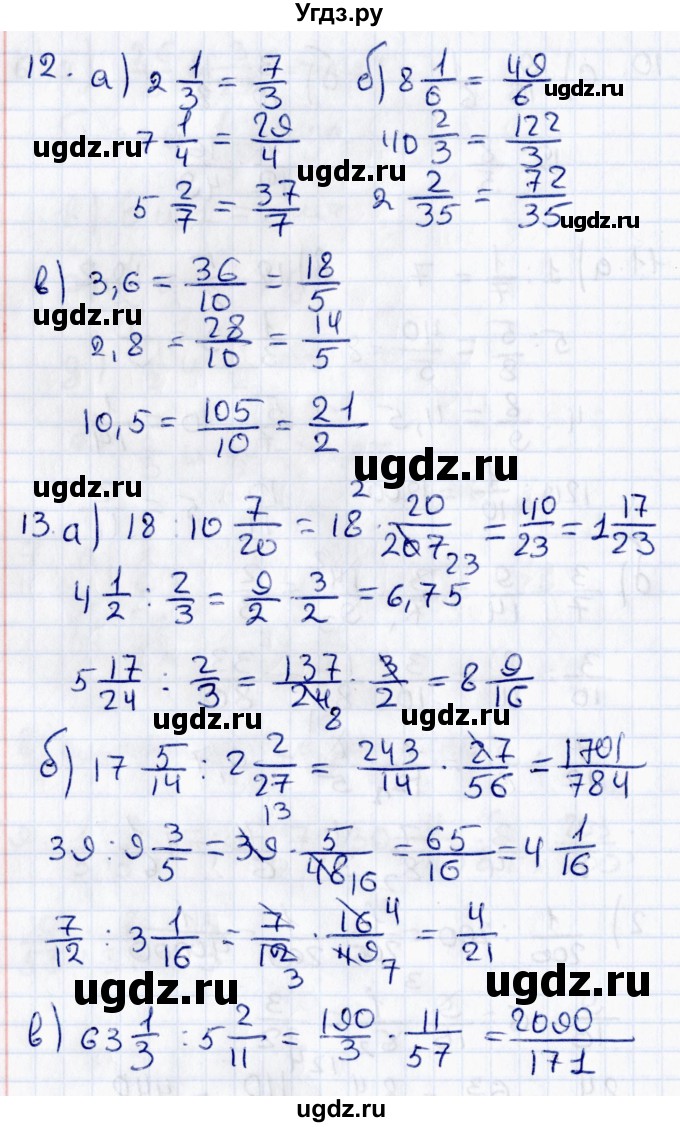 Угдз.ру
12. а) 2 1/3 = 7/3 б) 8 1/6 = 49/6
ugdz.ru
ugdz.ru
7 1/4 = 29/4 40 2/3 = 122/3
ugdz.ru
5 2/7 = 37/7 2 2/35 = 72/35
ugdz.ru
в) 3,6 = 36/10 = 18/5
ugdz.ru
2,8 = 28/10 = 14/5
10,5 = 105/10 = 21/2
ugdz.ru
ugdz.ru
13. а) 18 : 10 7/20 = 18 2 · 20/207 23 = 40/23 = 1 17/23
4 1/2 : 2/3 = 9/2 · 3/2 = 6,75
5 17/24 : 2/3 = 137/24 8 · 3/2 = 8 9/16
ugdz.ru
ugdz.ru
б) 17 5/14 : 2 2/27 = 243/14 · 27/56 = 1701/784
39 : 9 3/5 = 39 13 · 5/48 16 = 65/16 = 4 1/16
ugdz.ru
7/12 : 3 1/16 = 7/12 3 · 16 4/49 7 = 4/21
ugdz.ru
ugdz.ru
в) 63 1/3 : 5 2/11 = 190/3 · 11/57 = 2090/171
ugdz.ru